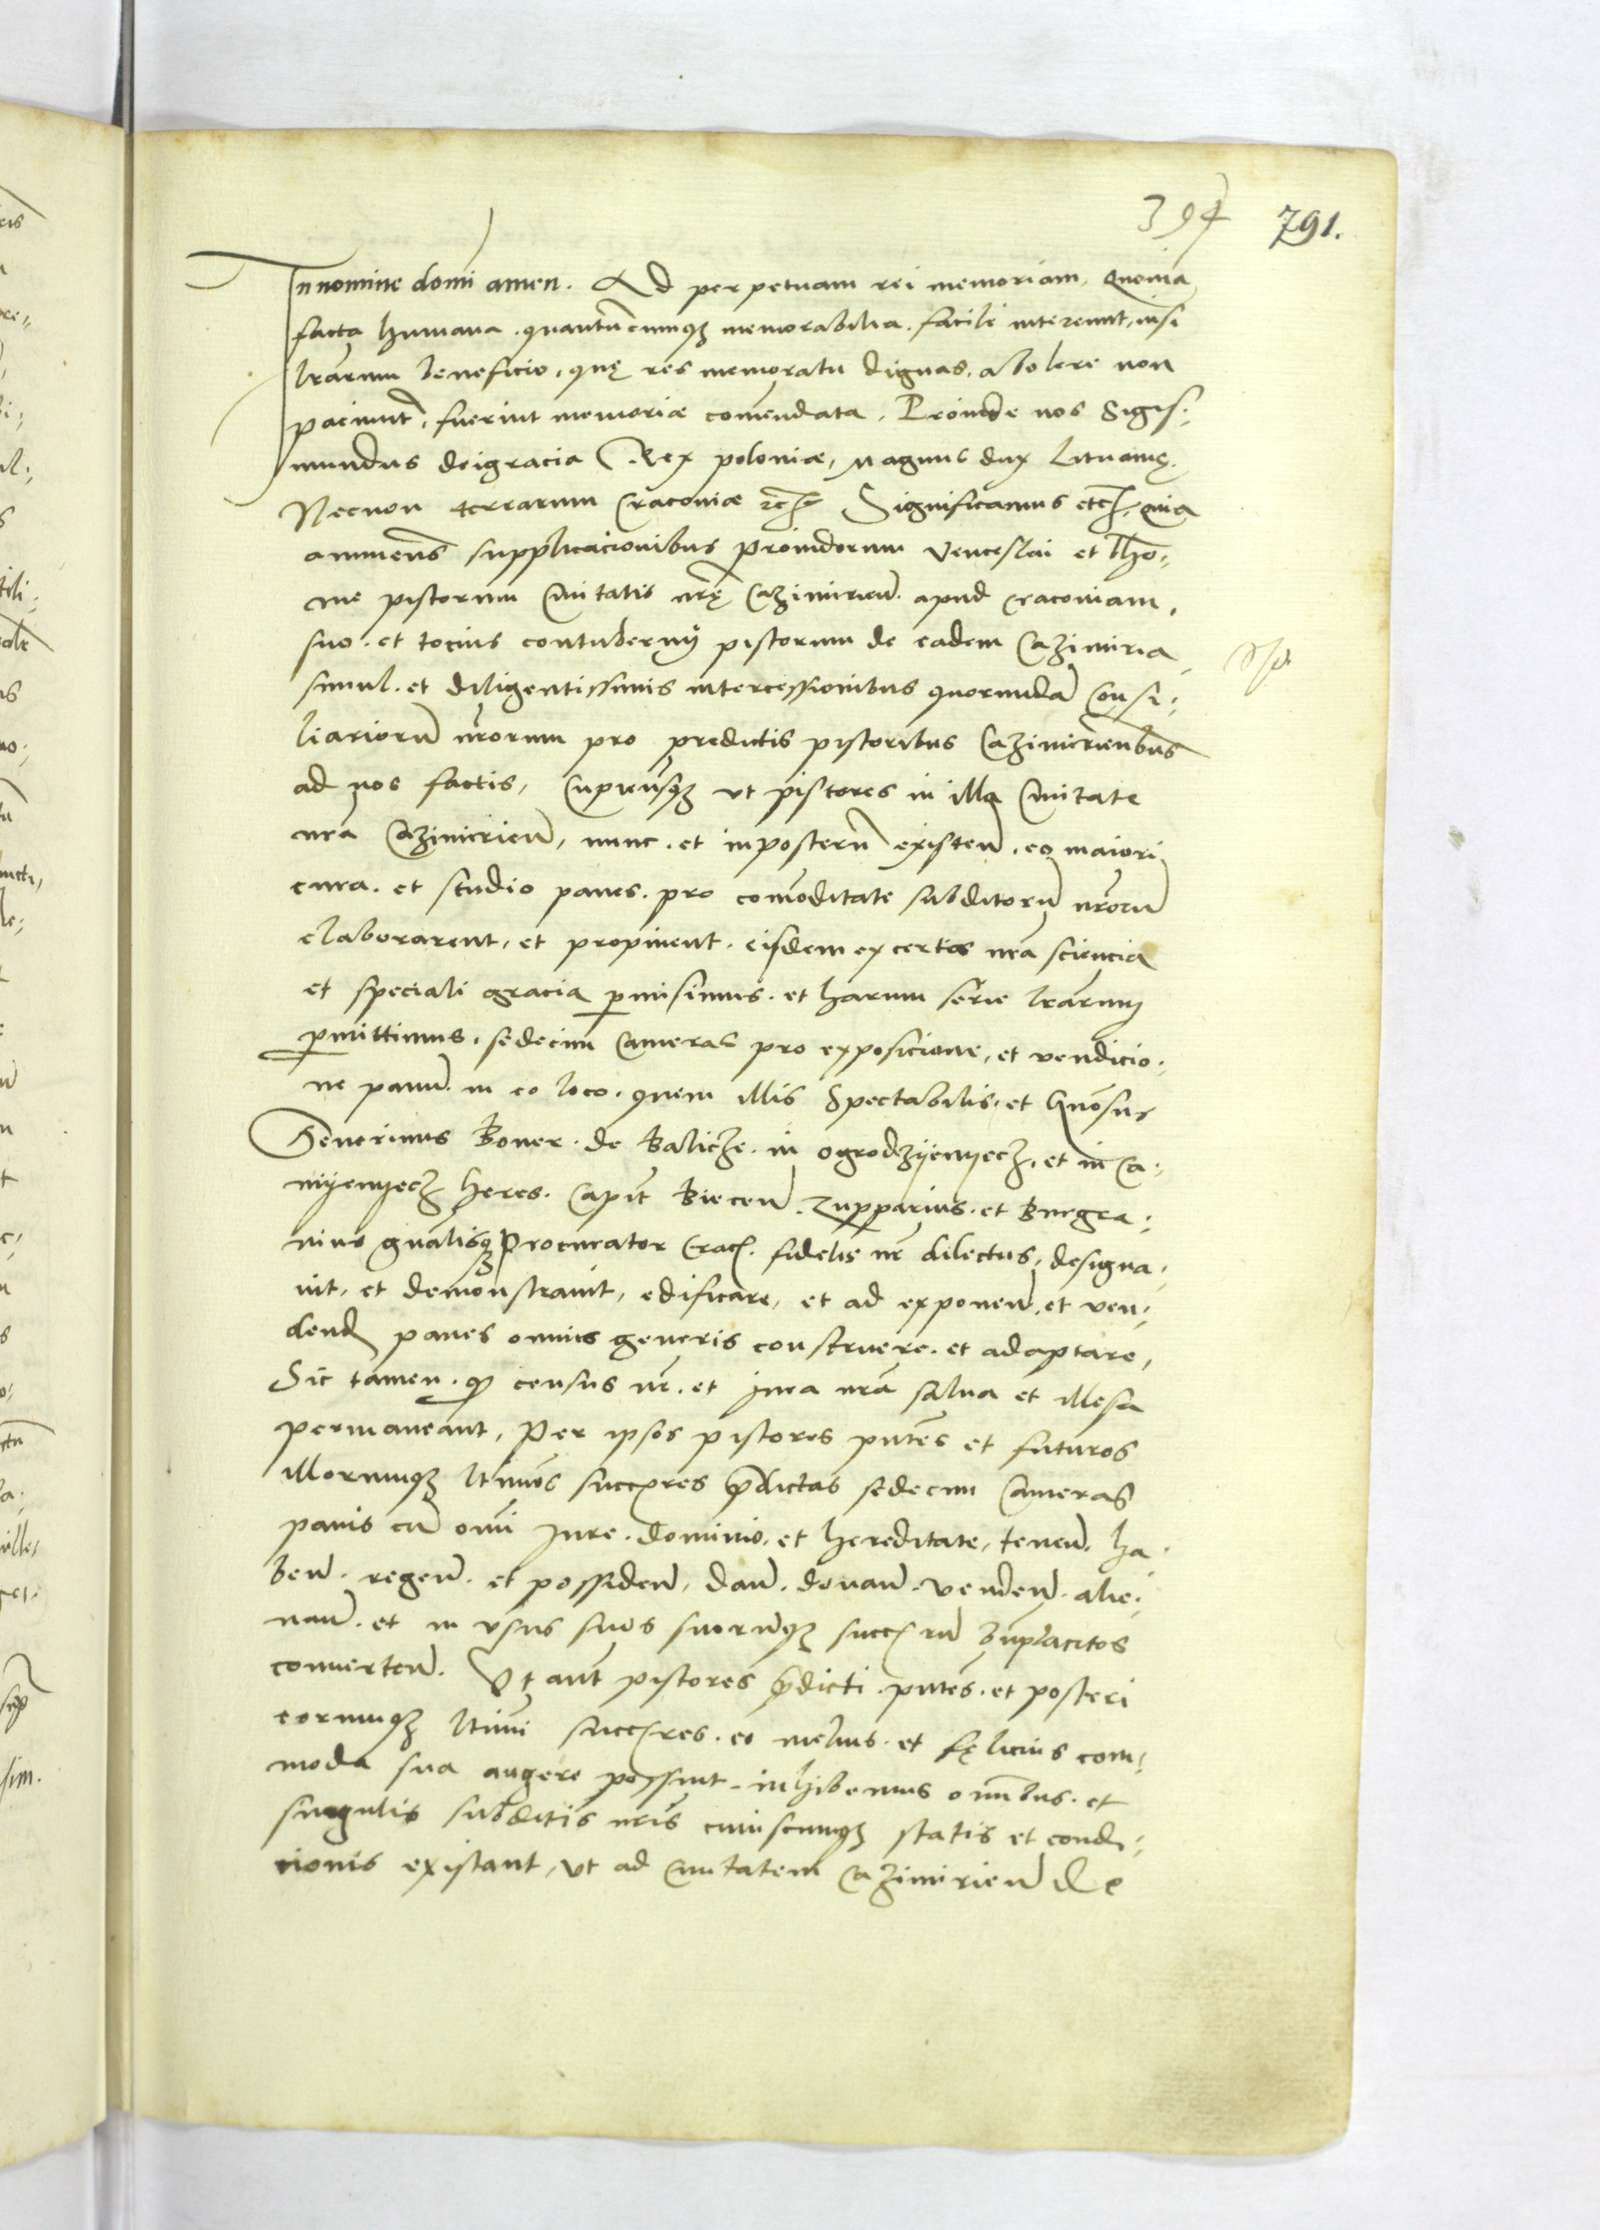 394 791.
In nomine domi amen. Ad perpetuam rei memoriam, Quonia
facta humana. quantucumq3 memorabilia. facile intereunt, nisi
lrarum beneficio, quę res memoratu dignas. abolere non
paciunt, fuerint memoriæ comendata. Proinde nos Sigis:
mundus deigracia Rex poloniæ, magnus dux Lituanię.
Necnon terrarum Cracoviæ etc Significamus etc, quia
annuens supplicacionibus providorum Venceslai et Tho:
me pistorum Civitatis nrę Cazimirien. apud Cracoviam,
suo. et tocius contubernij pistorum de eadem Cazimiria
simul. et diligentissimis intercessionibus quorunda Consi:
liarioru nrorum pro predictis pistoribus Cazimirienbus
ad nos factis, Cupiensq3 ut pistores in illa Civitate
nra Cazimirien, nunc. et inposteru existen. eo maiori
cura. et studio panes. pro comoditate subditoru nroru
elaborarent, et propinent. eisdem ex certa nra sciencia
et speciali gracia pmisimus. et harum serie lrarum
pmittimus, sedecim Cameras pro exposicione, et vendicio:
ne panu. in eo loco. quem illis Spectabilis. et Gnosus
Severinus Boner. de Balicze. in ogrodzyenyecz, et in Ca:
myenyecz heres. Capit Biecen. Zupparius. et Burgra:
vius gnalisq3 Procurator Crac. fidelis nr dilectus, designa:
vit, et demonstravit, edificare, et ad exponen, et ven:
dend panes omnis generis construere. et adaptare,
Sic tamen. q census nr. et jura nra salva et illesa
permaneant, Per ipsos pistores pntes et futuros
illorumq3 ltimos succores pdictas sedecim Cameras
panis cu omi Jure. dominio. et hereditate, tenen. ha:
ben. regen. et possiden, dan. donan. venden. alie:
nan. et in usus suos suorumq3 succoru bnplacitos
converten. Ut aut pistores pdicti. pntes. et posteri
eorumq3 ltimi succores. eo melius. et fęlicius com:
moda sua augere possint. inhibemus omibus. et
singulis subditis nris cuiuscumq3 statis et condi:
cionis existant, ut ad Civitatem Cazimirien de